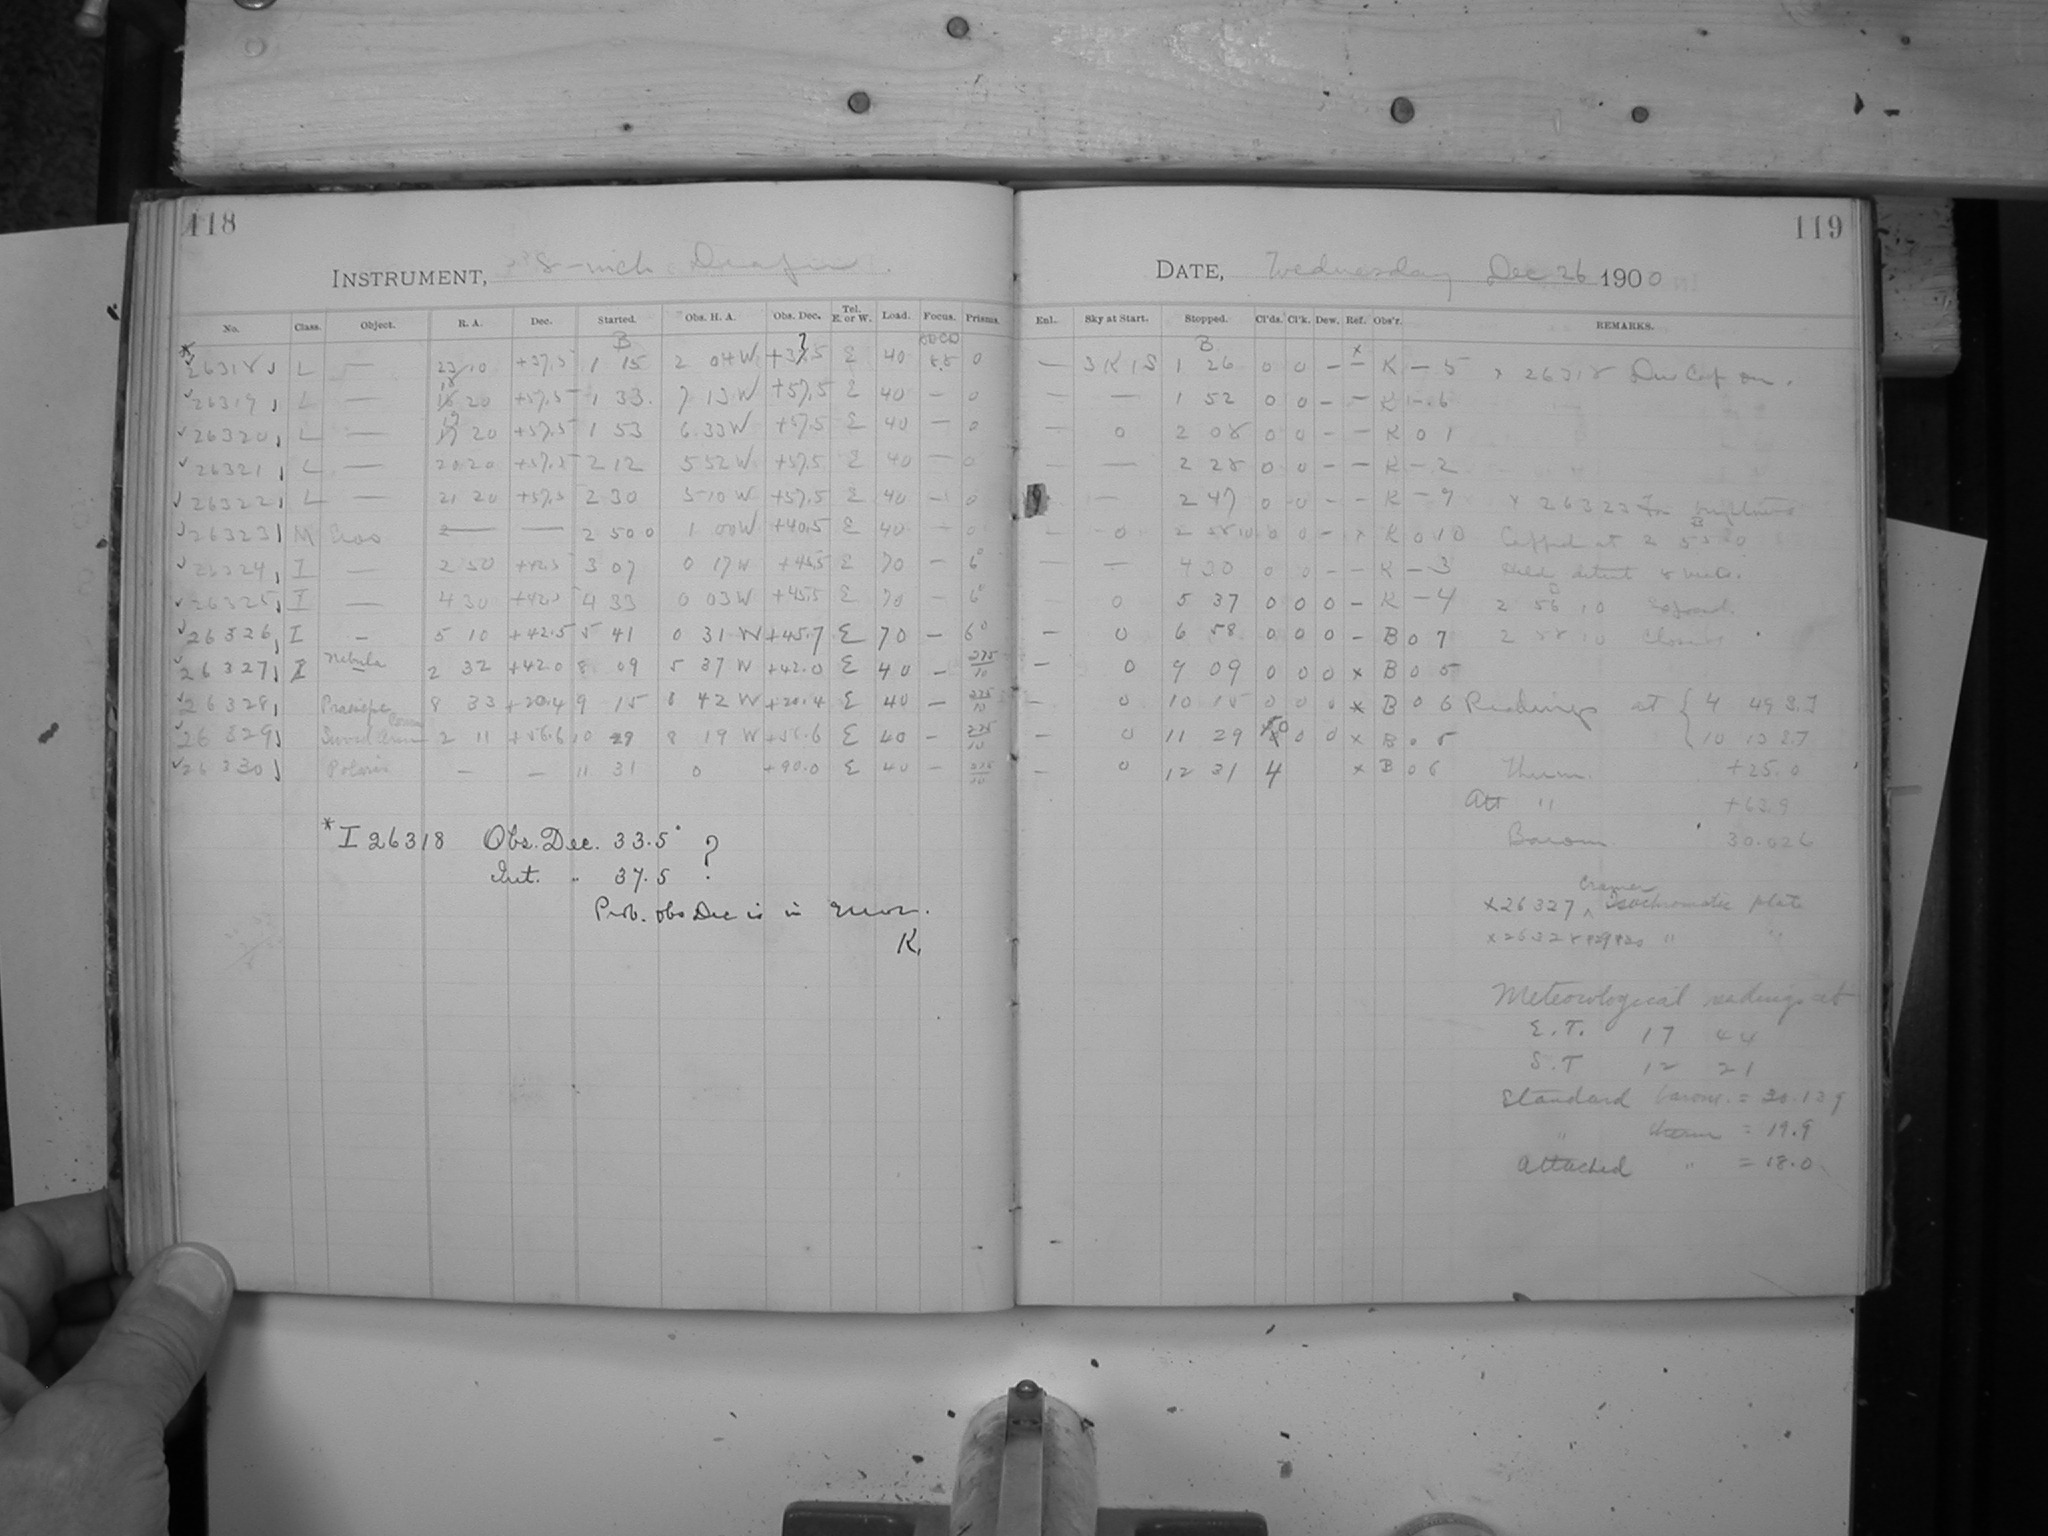 118
INSTRUMENT, 8-inch Draper.
No. Class. Object. R. A. Dec. Started. Obs. H. A. Obs. Dec. Tel. E. or W. Load. Focus. Prisms.
26318 L — 23 10 +37.5 1 15 2 04 W E 40 0
26319 L — 18 20 +57.5 1 33 7 13 W +57.5 E 40 — 0
26320 L — 19 20 +57.5 1 53 6 33 W +57.5 E 40 — 0
26321 L — 20 20 +57.5 2 12 5 52 W +57.5 E 40 — 0
26322 L — 21 20 +57.5 2 30 5 10 W +57.5 E 40 — 0
26323 M Eros — — 2 50 0 1 00 W +40.5 E 40 — 0
26324 I — 2 50 +42.5 3 07 0 17 W +45.5 E 70 — 6°
26325 I — 4 30 +42.5 4 33 0 03 W +45.5 E 70 — 6°
26326 I — 5 10 +42.5 5 41 0 31 W +45.7 E 70 — 6°
26327 Nebula 2 32 +42.0 8 09 5 37 W +42.0 E 40 —
26328 Praesepe 8 33 +20.4 9 15 0 42 W +20.4 E 40 —
26329 2 11 +56.6 10 29 8 19 W +56.6 E 40 —
26330 Polaris — — 11 31 0 +90.0 E 40 —
* I 26318 Obs. Dec. 33.5 ?
Int. " 37.5
Prob. obs Dec is in error.
K.
119
DATE, Wednesday Dec 26 1900
Enl. Sky at Start. Stopped. Cl'ds. Cl'k. Dew. Ref. Obs'r. REMARKS.
— S K I S 1 26 0 0 — × K — 5 × 26318 Dew Cap on.
— — 1 52 0 0 — — K — 6
— 0 2 08 0 0 — — K 0 1
— — 2 28 0 0 — — K — 2
— 2 47 0 0 — — K — 9 × 26323 For
— 0 2 58 10 0 0 — × K 0 10 Capped at 2 55 0
— — 4 30 0 0 — — K — 3 Held
0 5 37 0 0 0 — K — 4 2 56 10 Exposed.
— 0 6 58 0 0 0 — B 0 7 2 58 10 Closed
— 0 9 09 0 0 0 × B 0 5
— 0 10 15 0 0 0 × B 0 6 Readings at { 4 49 3.7
— 0 11 29 0 0 × B 0 5 10 13 8.7
— 0 12 31 4 × B 0 6 Therm. +25.0
Att " +63.9
Barom. 30.026
× 26327 ^ Cramer Isochromatic plate
× 26328 " "
Meteorological readings at
E. T. 17 44
S. T 12 21
Standard barom. = 30.139
" therm = 19.9
Attached " = 18.0